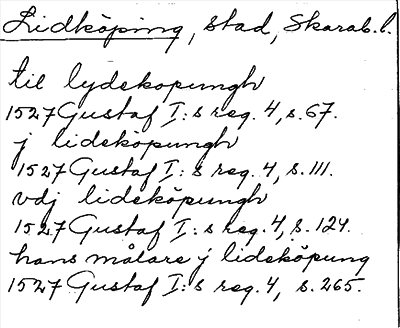 Lidköping, stad, Skarab.l.
til lydekopungh
1527 Gustaf I:s reg. 4, s. 67.
j lideköpungh
1527 Gustaf I:s reg. 4, s. 111.
vdj lideköpungh
1527 Gustaf I:s reg. 4, s. 124.
hans målare j lideköpung
1527 Gustaf I:s reg. 4, s. 265.